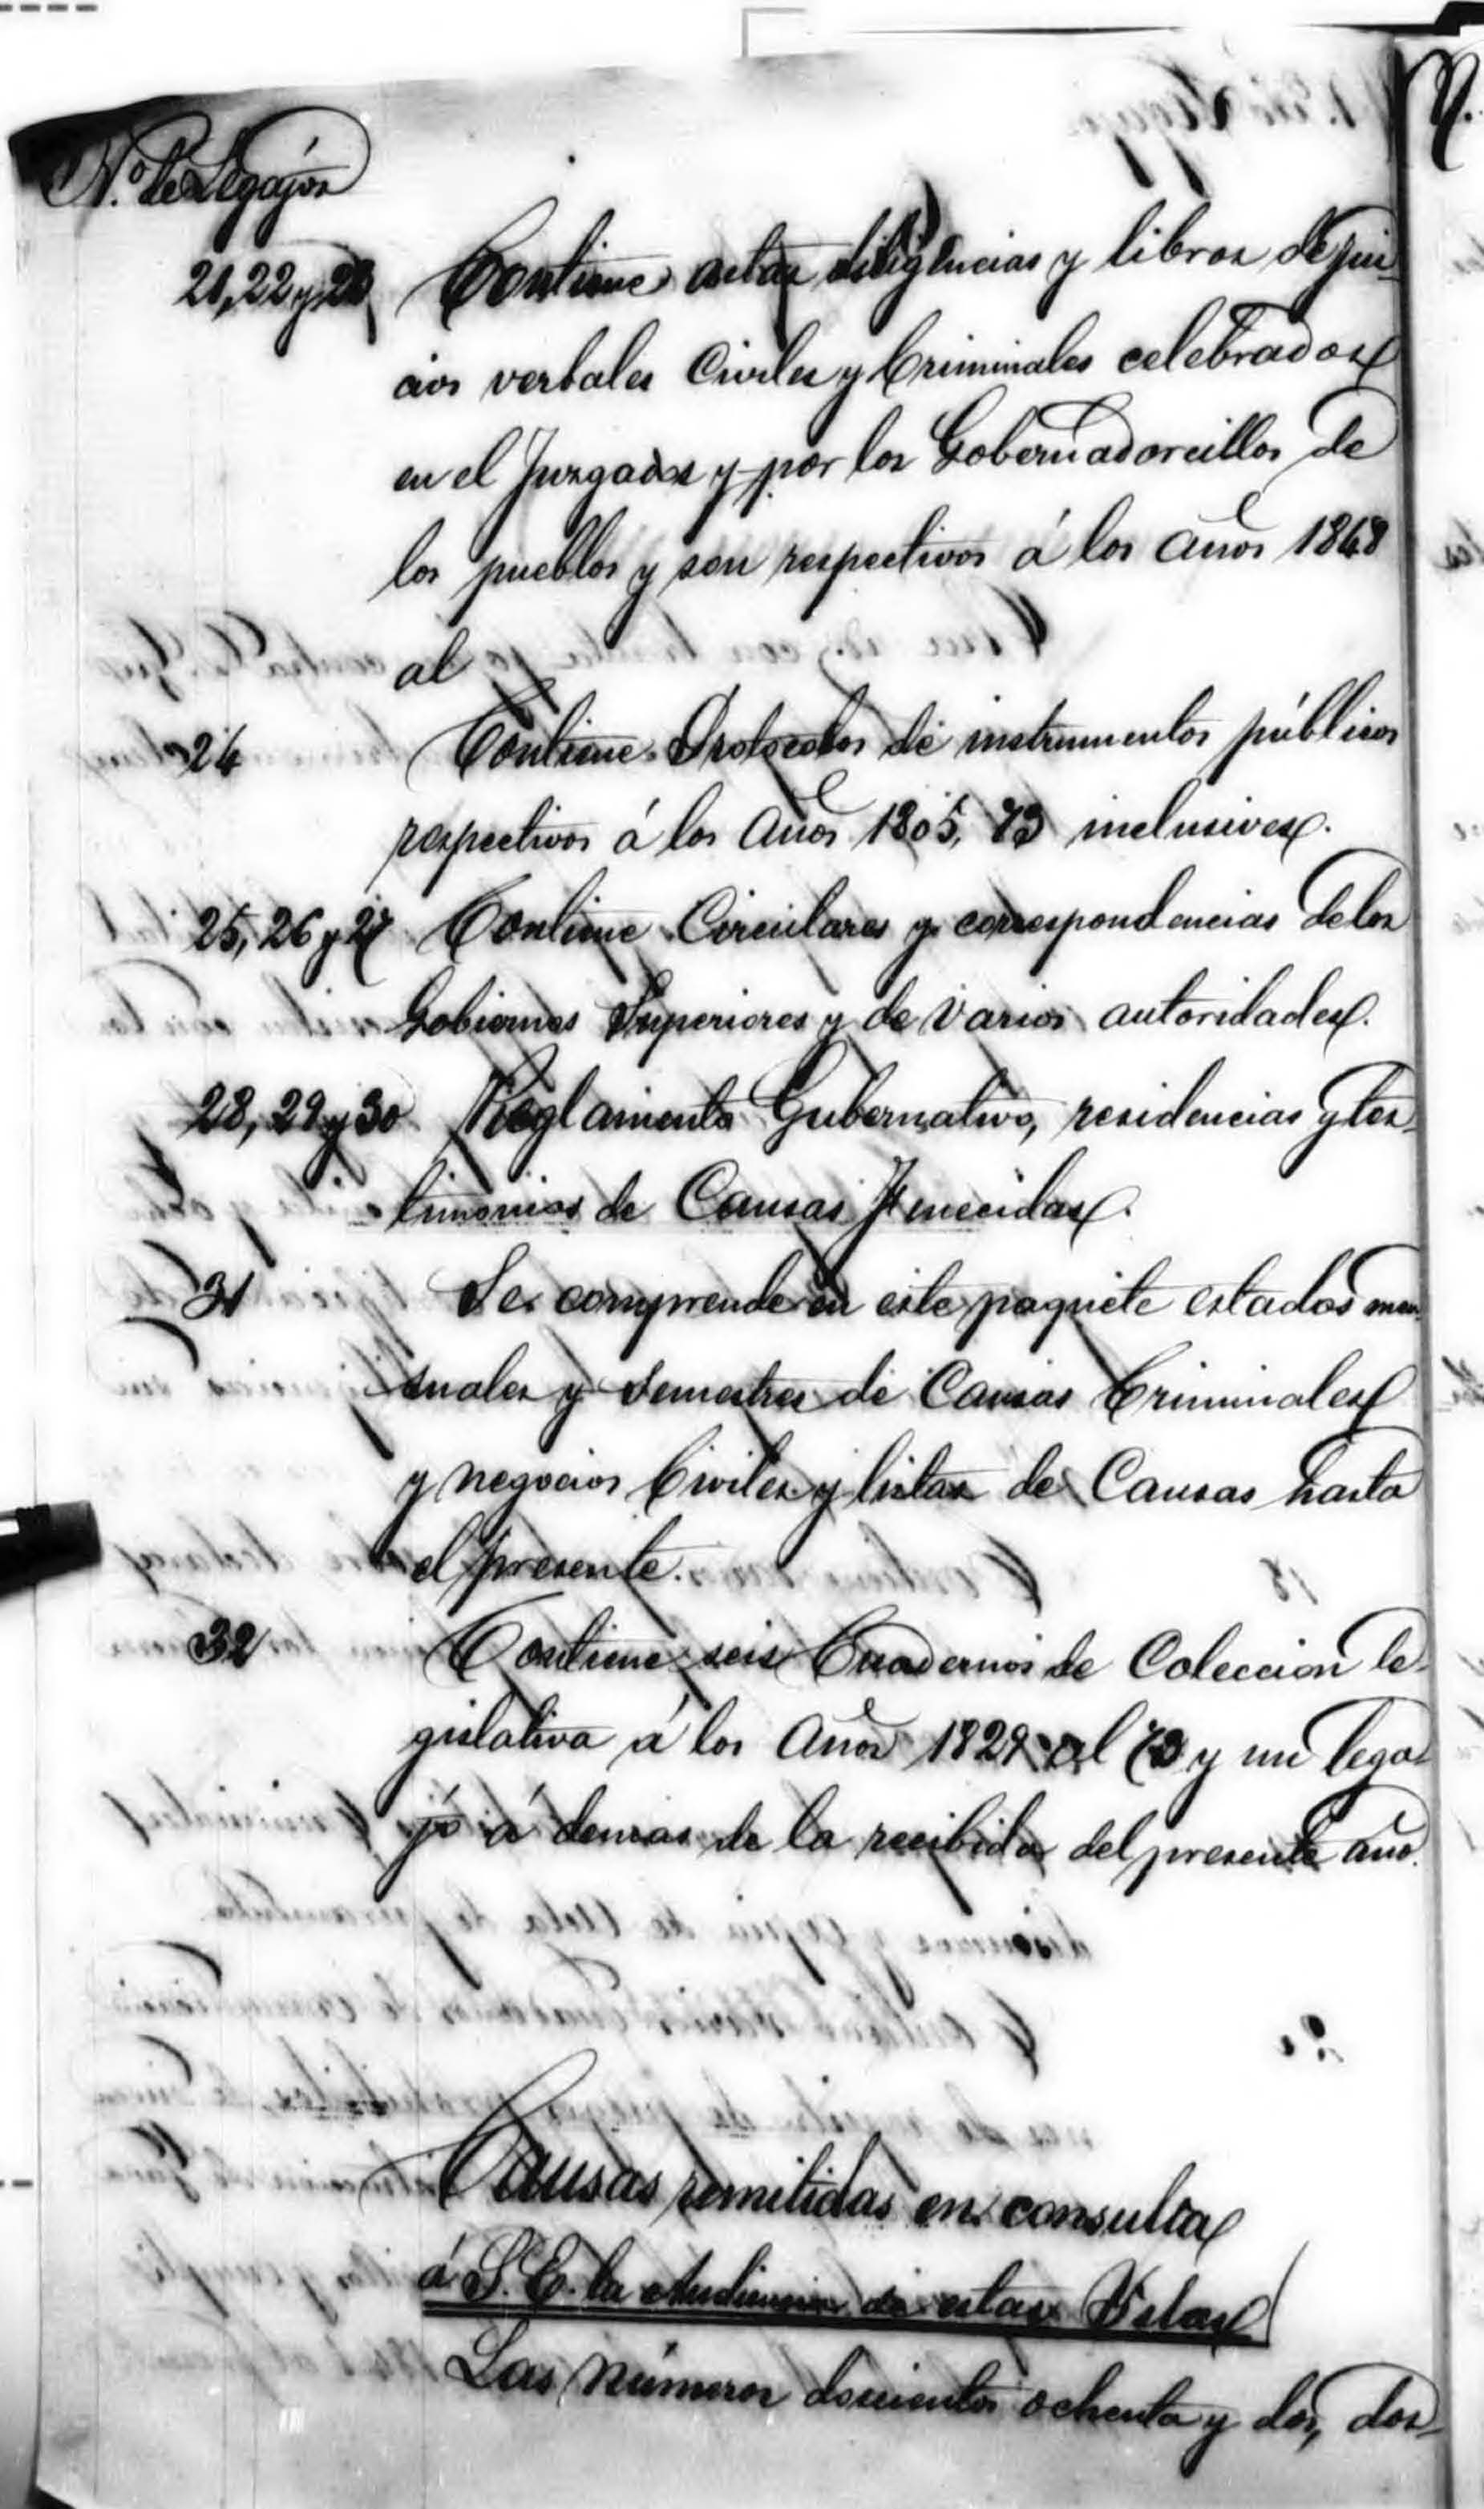 N.º de Legajos
21, 22 y 23 Contiene actas diligencias y libros de jui-
cios verbales Civiles y Criminales celebrados
en el Juzgado y por los Gobernadorcillos de
los pueblos y son respectivos á los años 1868
al
24 Contiene Protocolos de instrumentos públicos
respectivos á los años 1805, 73 inclusives.
25, 26 y 27 Contiene Circulares y correspondencias delos
Gobiernos Superiores y de varios autoridades.
28, 29 y 30 Reglamento Gubernativo, residencias y tes-
timonios de Causas Fenecidas.
31 Se comprende en este paquete estados men-
suales y semestres de Causas Criminales
y negocios Civiles y listas de Causas hasta
el presente.
32 Contiene seis Cuadernos de Coleccion le-
gislativa á los años 1829 al 73 y un lega-
jo á demas de la recibida del presente año.
Causas remitidas en consulta
á S. E. la Audiencia de estas Yslas
Las números doscientos ochenta y dos, dos-